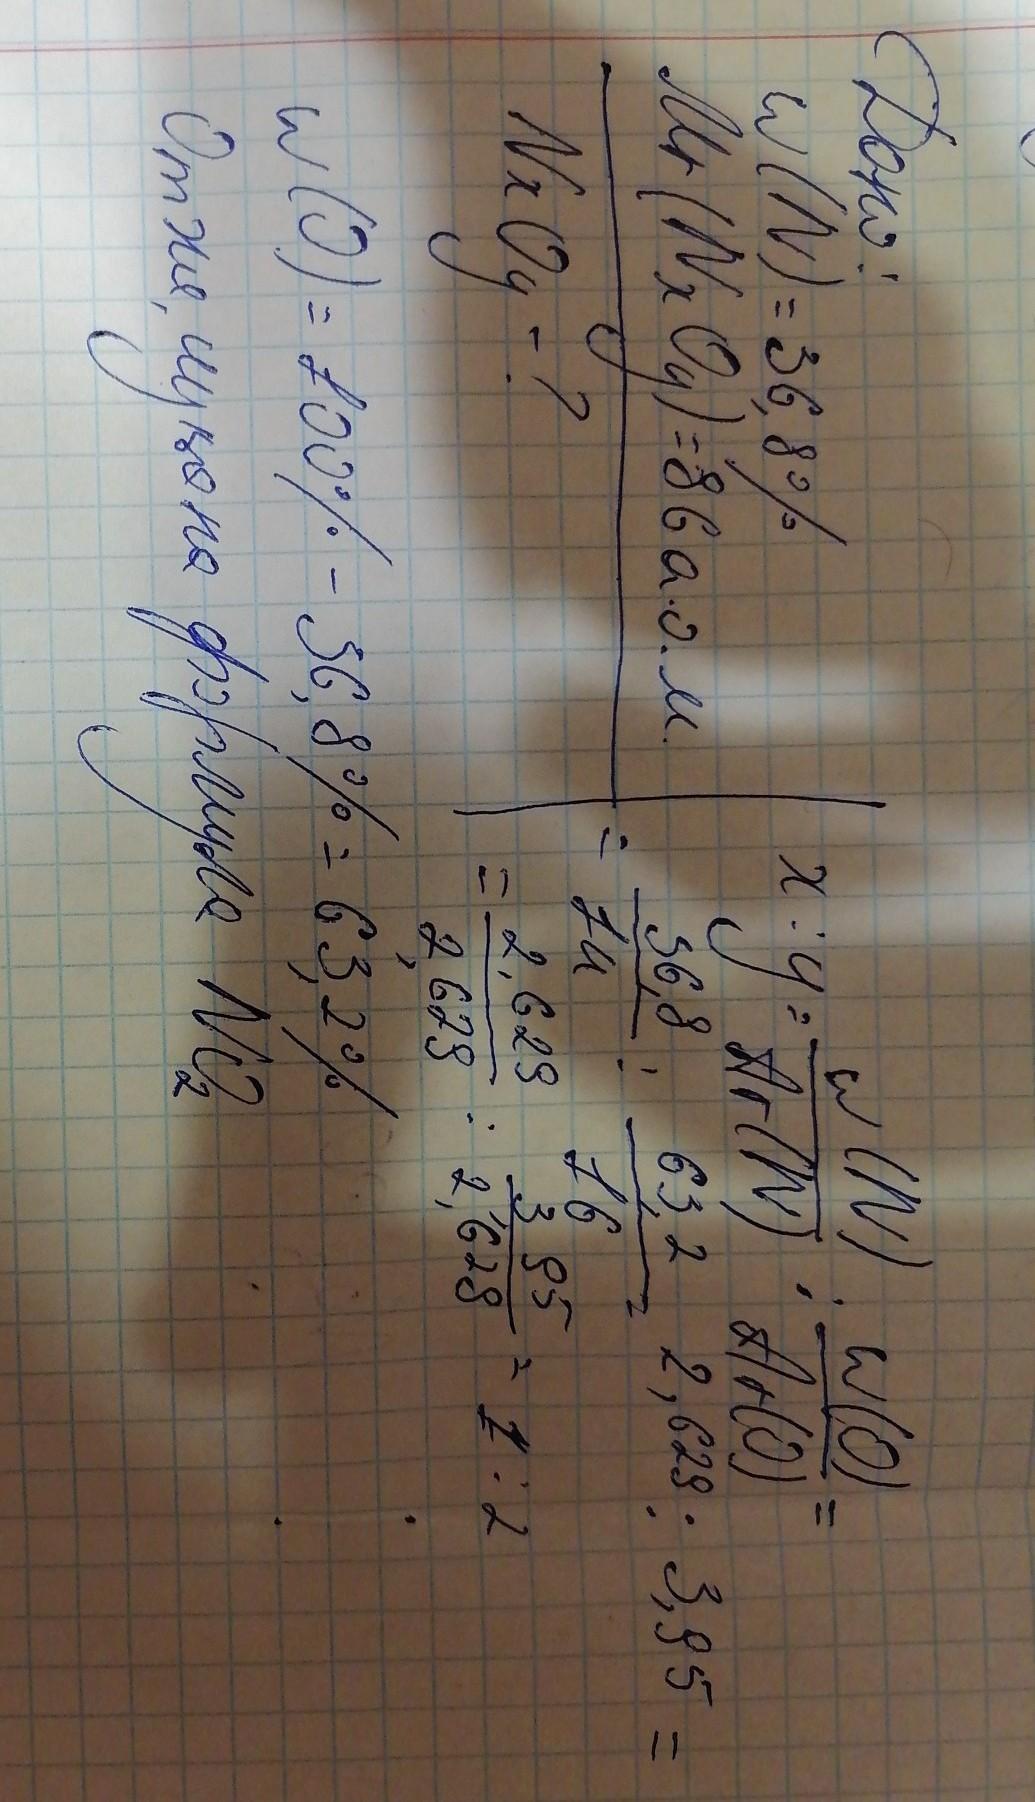 Дано:
w(N) = 36,8%
Mr(NxOy) = 86 а.о.м.
NxOy - ?
x : y = w(N)/Ar(N) : w(O)/Ar(O) =
= 36,8/14 : 63,2/16 = 2,629 : 3,95 =
= 2,629/2,629 : 3,95/2,629 = 1 : 2
w(O) = 100% - 36,8% = 63,2%
Отже, шукана формула NO2